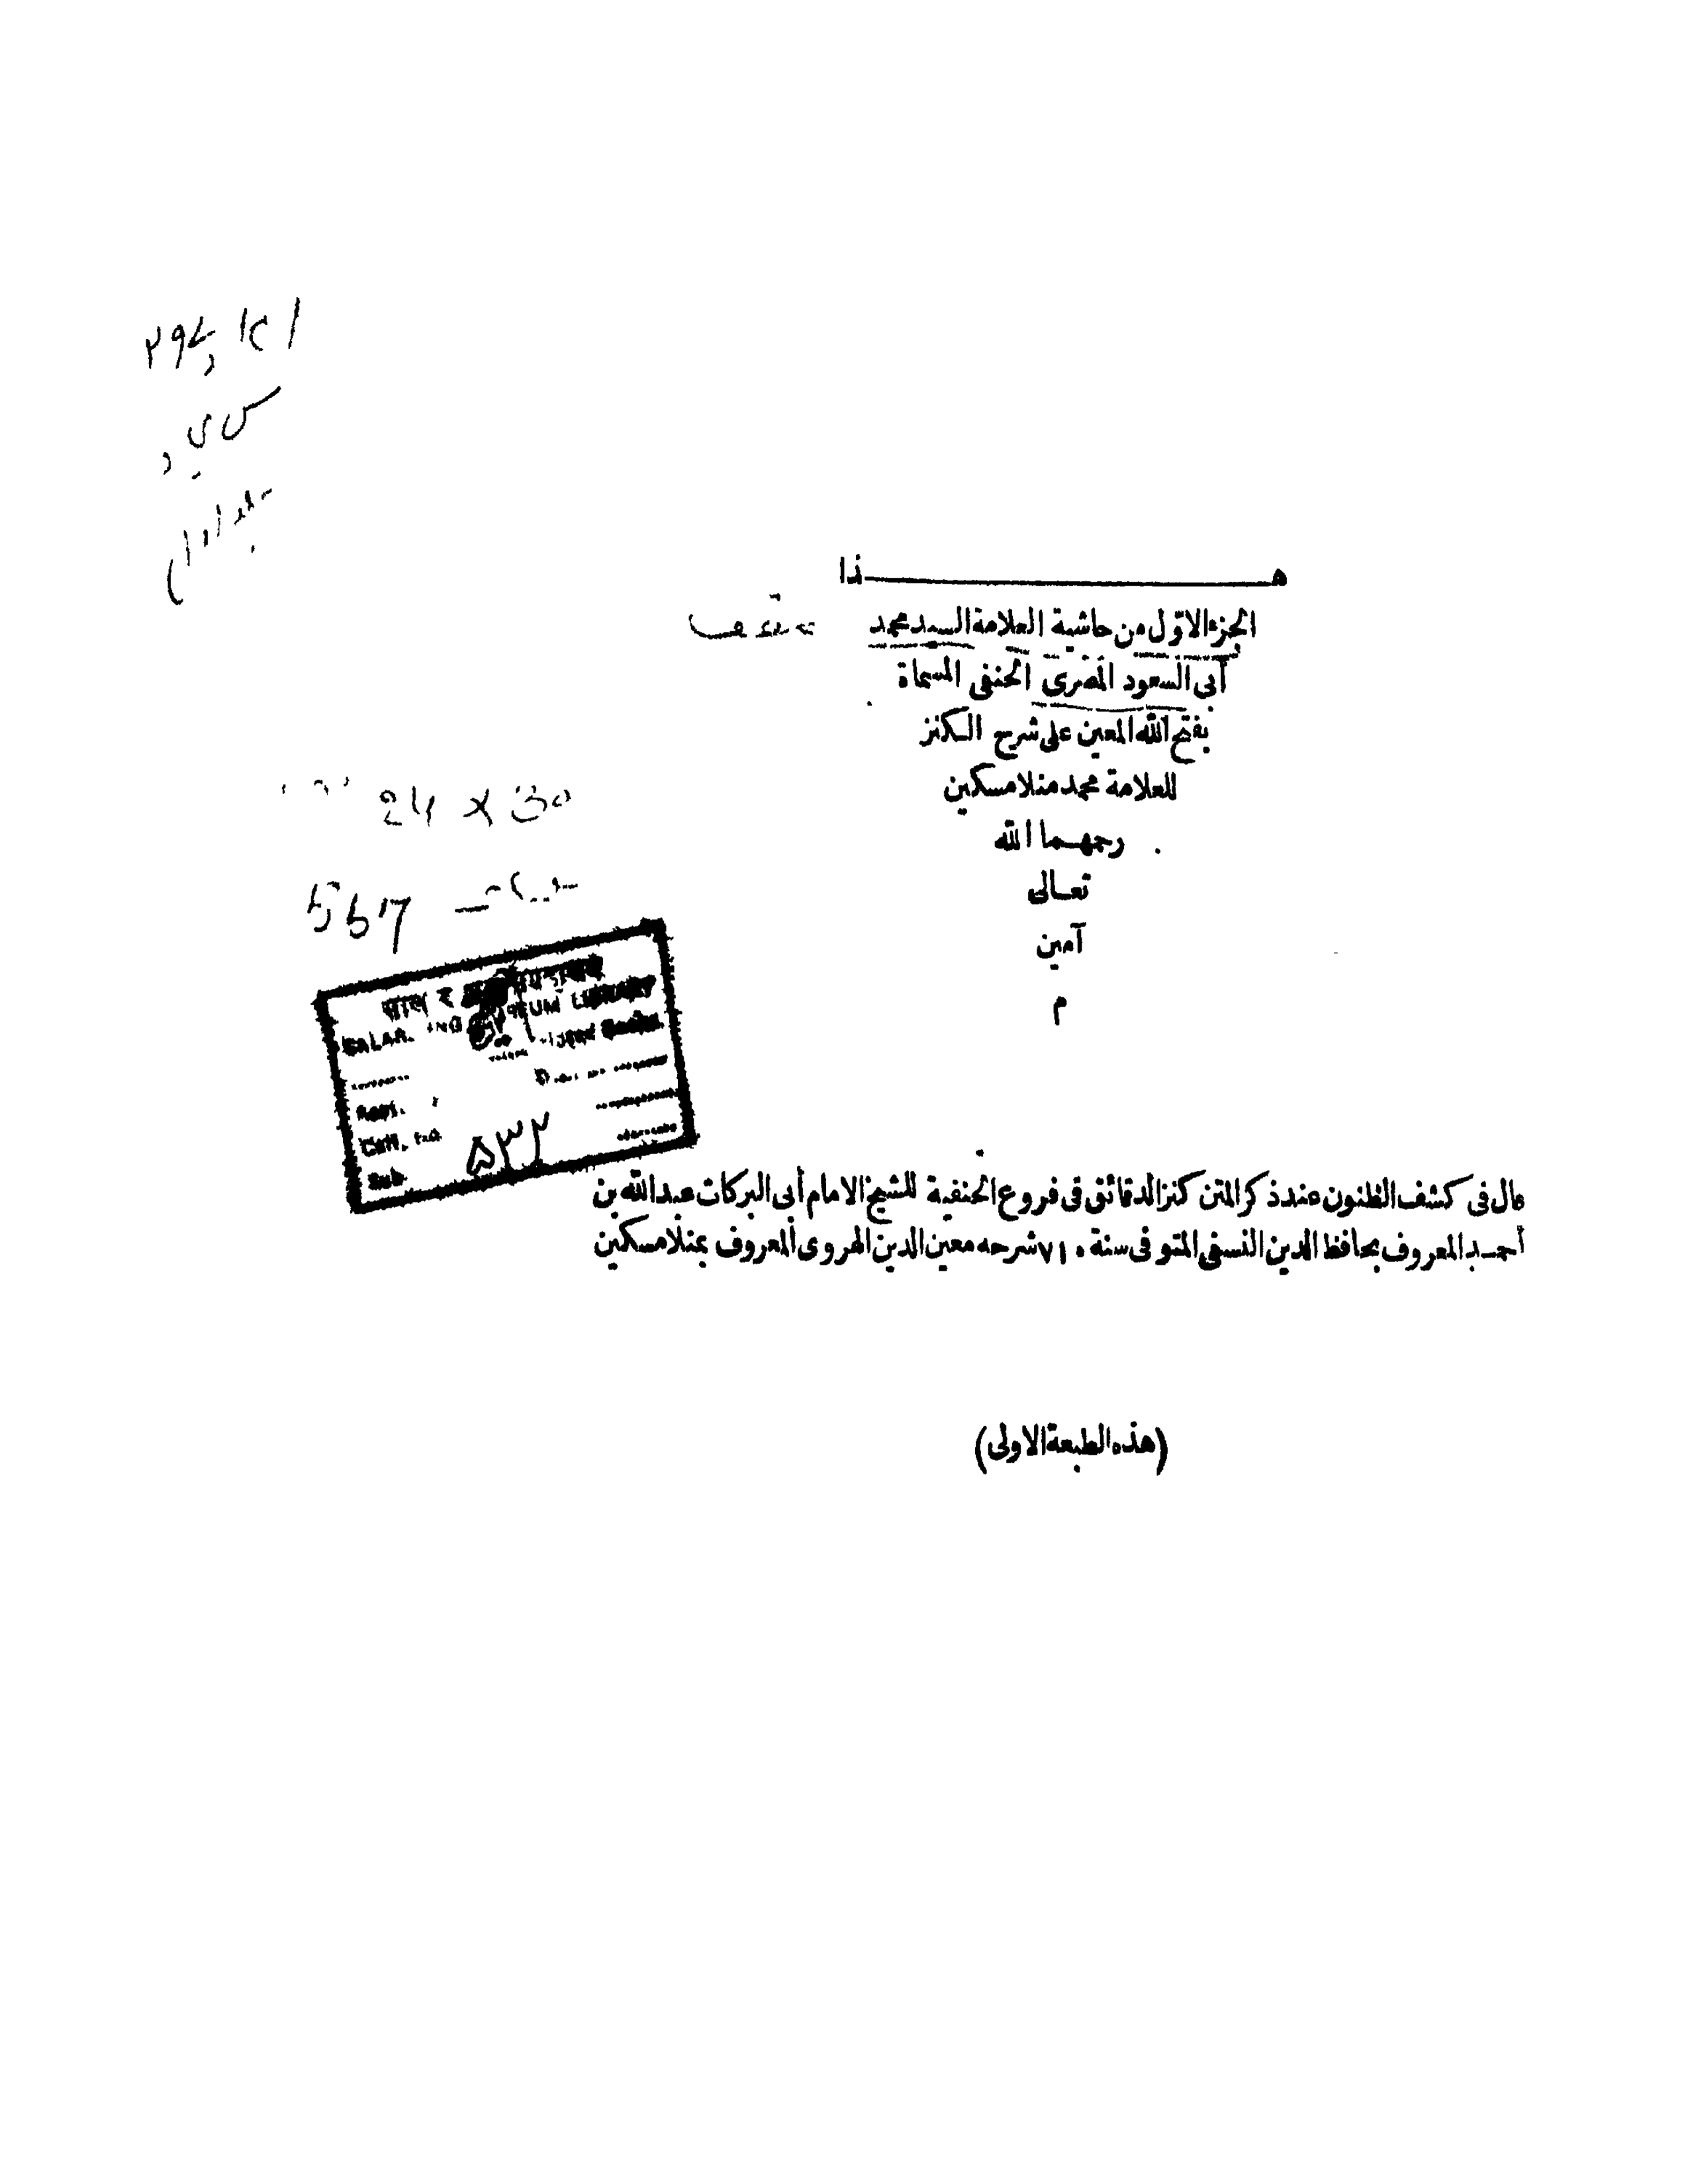 هـــــــذا
الجزء الاوّل من حاشية العلامة السيد محمد
أبى السعود المصرى الحنفى المسماة
بفتح الله المعين على شرح الكنز
للعلامة محمد منلا مسكين
رحمهما الله
تعالى
آمين
م
24 x 30
567
SALAR LIBRARY
Sub.
۵۳۲
قال فى كشف الظنون عند ذكر المتن كنز الدقائق فى فروع الحنفية للشيخ الامام أبى البركات عبد الله بن
أحمد المعروف بحافظ الدين النسفى المتوفى سنة ٧١٠ شرحه معين الدين الهروى المعروف بمنلا مسكين
(هذه الطبعة الاولى)